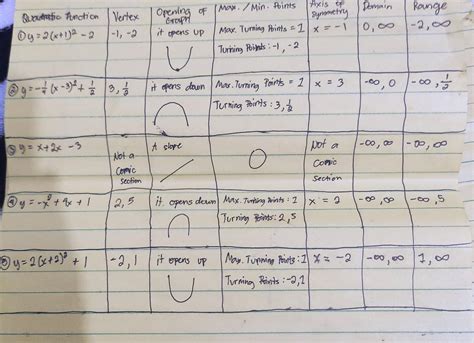 Quadratic Function Vertex Opening of Graph Max. / Min. Points Axis of Symmetry Domain Range
① y = 2(x+1)² - 2 -1, -2 it opens up Max. Turning Points = 1 x = -1 0, ∞ -2, ∞
Turning Points: -1, -2
② y = -1/4 (x-3)² + 1/2 3, 1/2 it opens down Max. Turning Points = 1 x = 3 -∞, 0 -∞, 1/2
Turning Points: 3, 1/2
③ y = x + 2x - 3 Not a Conic section A slope 0 Not a Conic section -∞, ∞ -∞, ∞
④ y = -x² + 4x + 1 2, 5 it opens down Max. Turning Points: 1 x = 2 -∞, ∞ -∞, 5
Turning Points: 2, 5
⑤ y = 2(x+2)² + 1 -2, 1 it opens up Max. Turning Points: 1 x = -2 -∞, ∞ 1, ∞
Turning Points: -2, 1